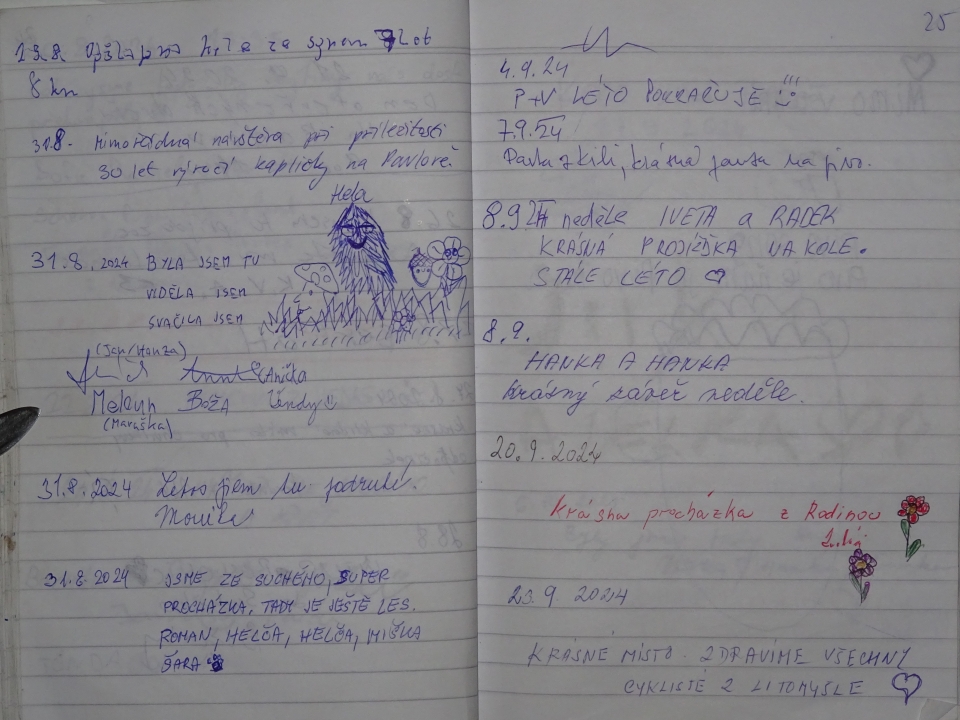 8 km
31.8. Mimořádná návštěva při příležitosti
30 let výročí kapličky na Pavlově.
Hela
31.8.2024 BYLA JSEM TU
VIDĚLA JSEM
SVAČILA JSEM
(Jan/Honza)
(Anička)
BOŽA
(Maruška)
31.8.2024 Letos jsem tu podruhé.
Monika
31.8 2024 JSME ZE SUCHÉHO, SUPER
PROCHÁZKA, TADY JE JEŠTĚ LES.
ROMAN, HELČA, HELČA, MIŠKA
ŠÁRA
25
4.9.24
P+V LÉTO POKRAČUJE
7.9.24
na pivo.
8.9 24 neděle IVETA a RADEK
KRÁSNÁ PROJÍŽĎKA NA KOLE.
STÁLE LÉTO
8.9.
HANKA A HANKA
Krásný závěr neděle.
20.9.2024
Krásna procházka z Rodinou
23.9 2024
KRÁSNÉ MÍSTO. ZDRAVÍME VŠECHNY
CYKLISTÉ Z LITOMYŠLE